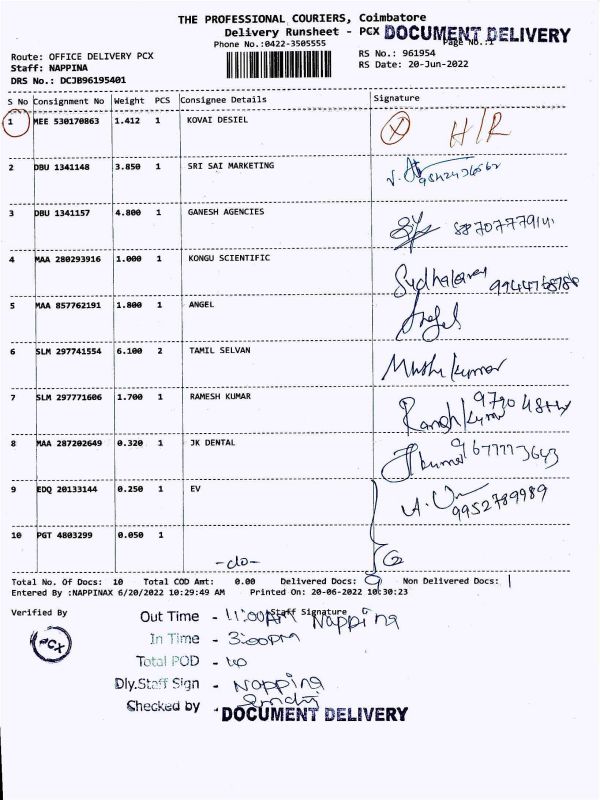 THE PROFESSIONAL COURIERS, Coimbatore
Delivery Runsheet - PCX DOCUMENT DELIVERY
Phone No.:0422-3505555 Page No.:1
Route: OFFICE DELIVERY PCX RS No.: 961954
Staff: NAPPINA RS Date: 20-Jun-2022
DRS No.: DCJB96195401
S No Consignment No Weight PCS Consignee Details Signature
1 MEE 530170863 1.412 1 KOVAI DESIEL X H/R
2 DBU 1341148 3.850 1 SRI SAI MARKETING
3 DBU 1341157 4.800 1 GANESH AGENCIES
4 MAA 280293916 1.000 1 KONGU SCIENTIFIC 9944768788
5 MAA 857762191 1.800 1 ANGEL Angel
6 SLM 297741554 6.100 2 TAMIL SELVAN Muthu kumar
7 SLM 297771606 1.700 1 RAMESH KUMAR
8 MAA 287202649 0.320 1 JK DENTAL
9 EDQ 20133144 0.250 1 EV 9952789989
10 PGT 4803299 0.050 1
-do-
Total No. Of Docs: 10 Total COD Amt: 0.00 Delivered Docs: 9 Non Delivered Docs: 1
Entered By :NAPPINAX 6/20/2022 10:29:49 AM Printed On: 20-06-2022 10:30:23
Verified By Staff Signature
PCX
Out Time - 11:00AM Nappina
In Time - 3:00pm
Total POD - 10
Dly.Staff Sign - Nappina
Checked by -
DOCUMENT DELIVERY